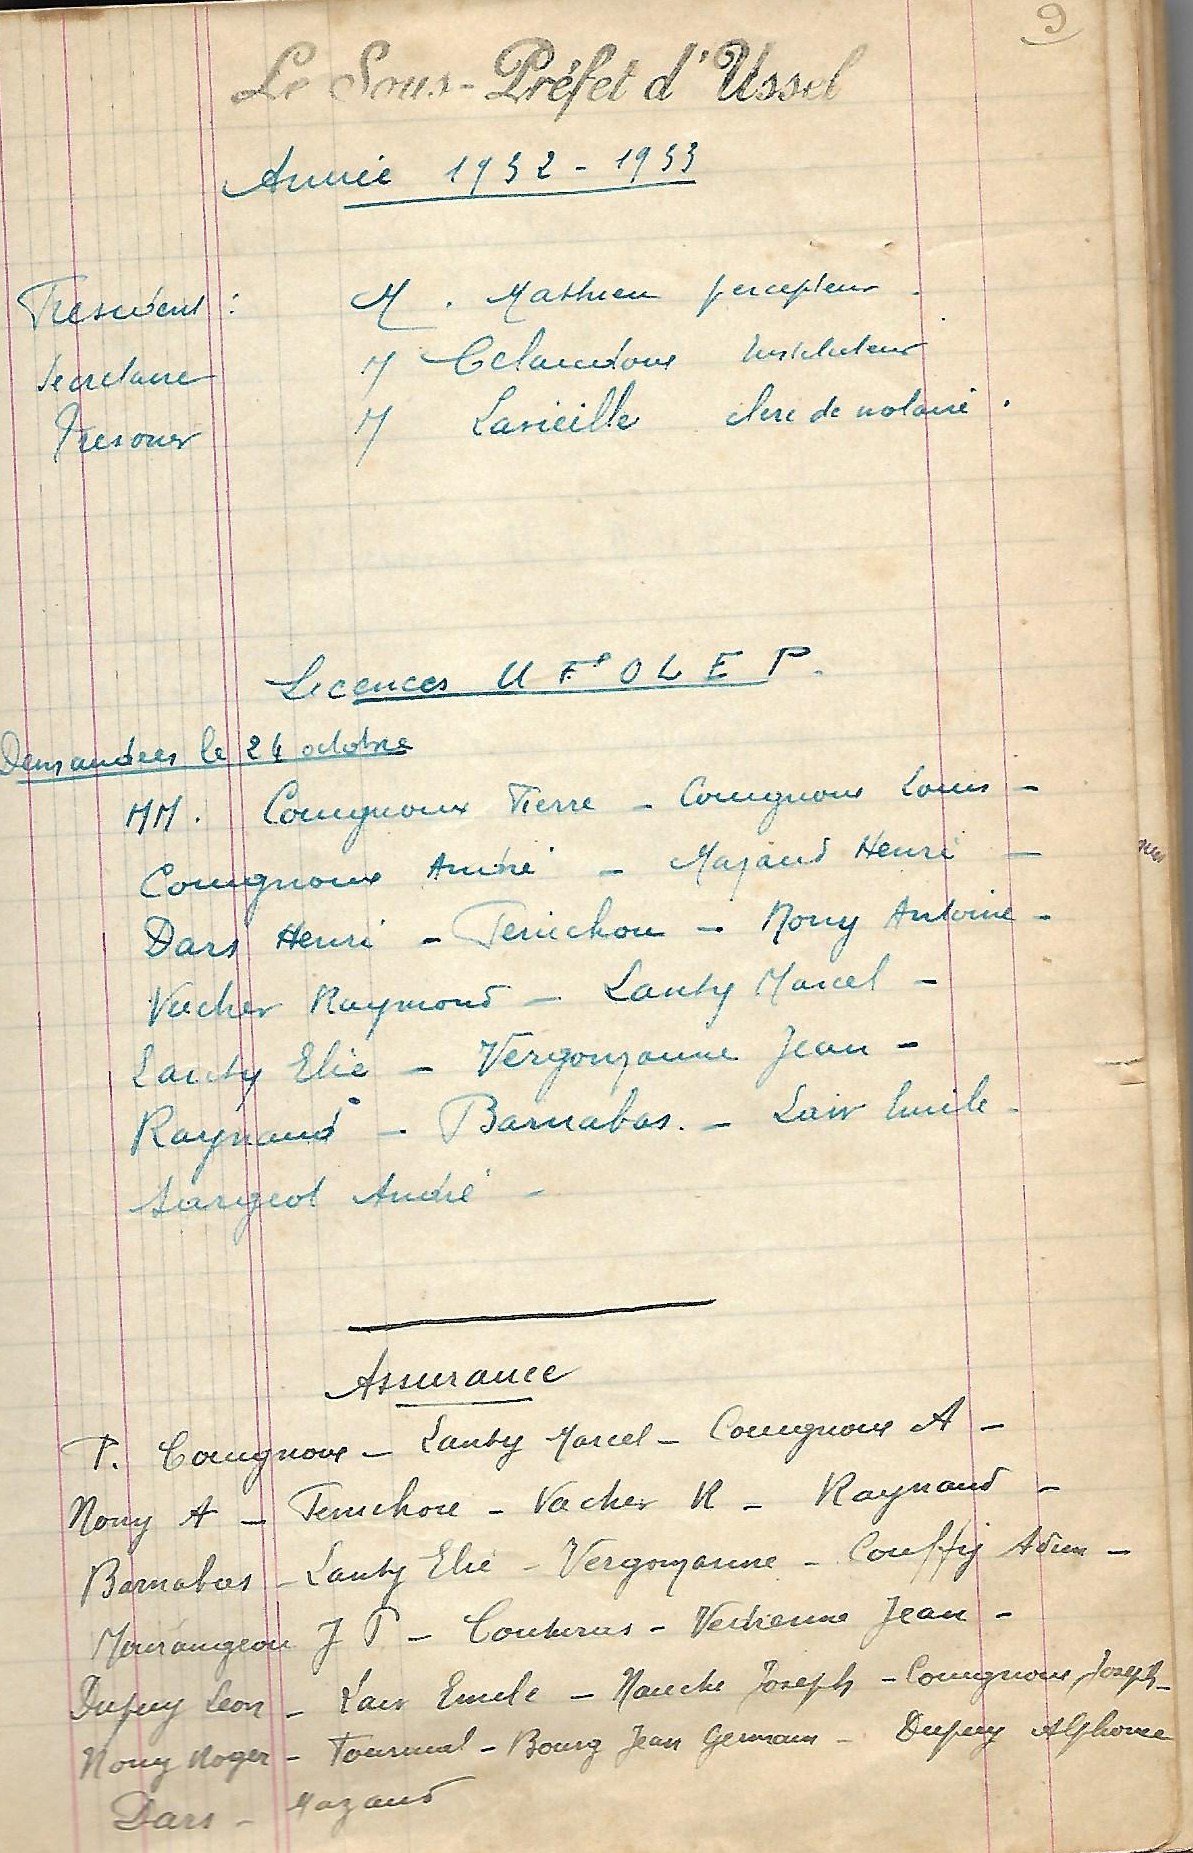 9
Le Sous-Préfet d'Ussel
Année 1932 - 1933
President : M. Mathieu percepteur.
Secretaire M Celaudoux Instituteur
Tresorier M Lavieille clerc de notaire.
Licences U F O L E P.
Demandées le 24 octobre
MM. Couignoux Pierre - Couignoux Louis -
Couignoux André - Mazaud Henri -
Dars Henri - Peruchon - Nony Antoine -
Vacher Raymond - Lanty Marcel -
Lanty Elie - Vergonzanne Jean -
Raynaud - Barnabas. - Lair Emile -
Surgeot André -
Assurance
P. Couignoux - Lanty Marcel - Couignoux A -
Nony A - Peruchon - Vacher R - Raynaud -
Barnabas - Lanty Elie - Vergonzanne - Couffy Adrien -
J P - Couturas - Vedrenne Jean -
Dupuy Leon - Lair Emile - Manche Joseph - Couignoux Joseph -
Nony Roger - Bourg Jean Germain - Dupuy Alphonse
Dars - Mazaud